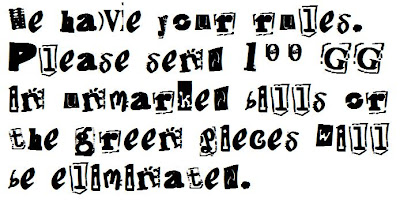 We have your rules.
Please send 100 GG
in unmarked bills or
the green pieces will
be eliminated.